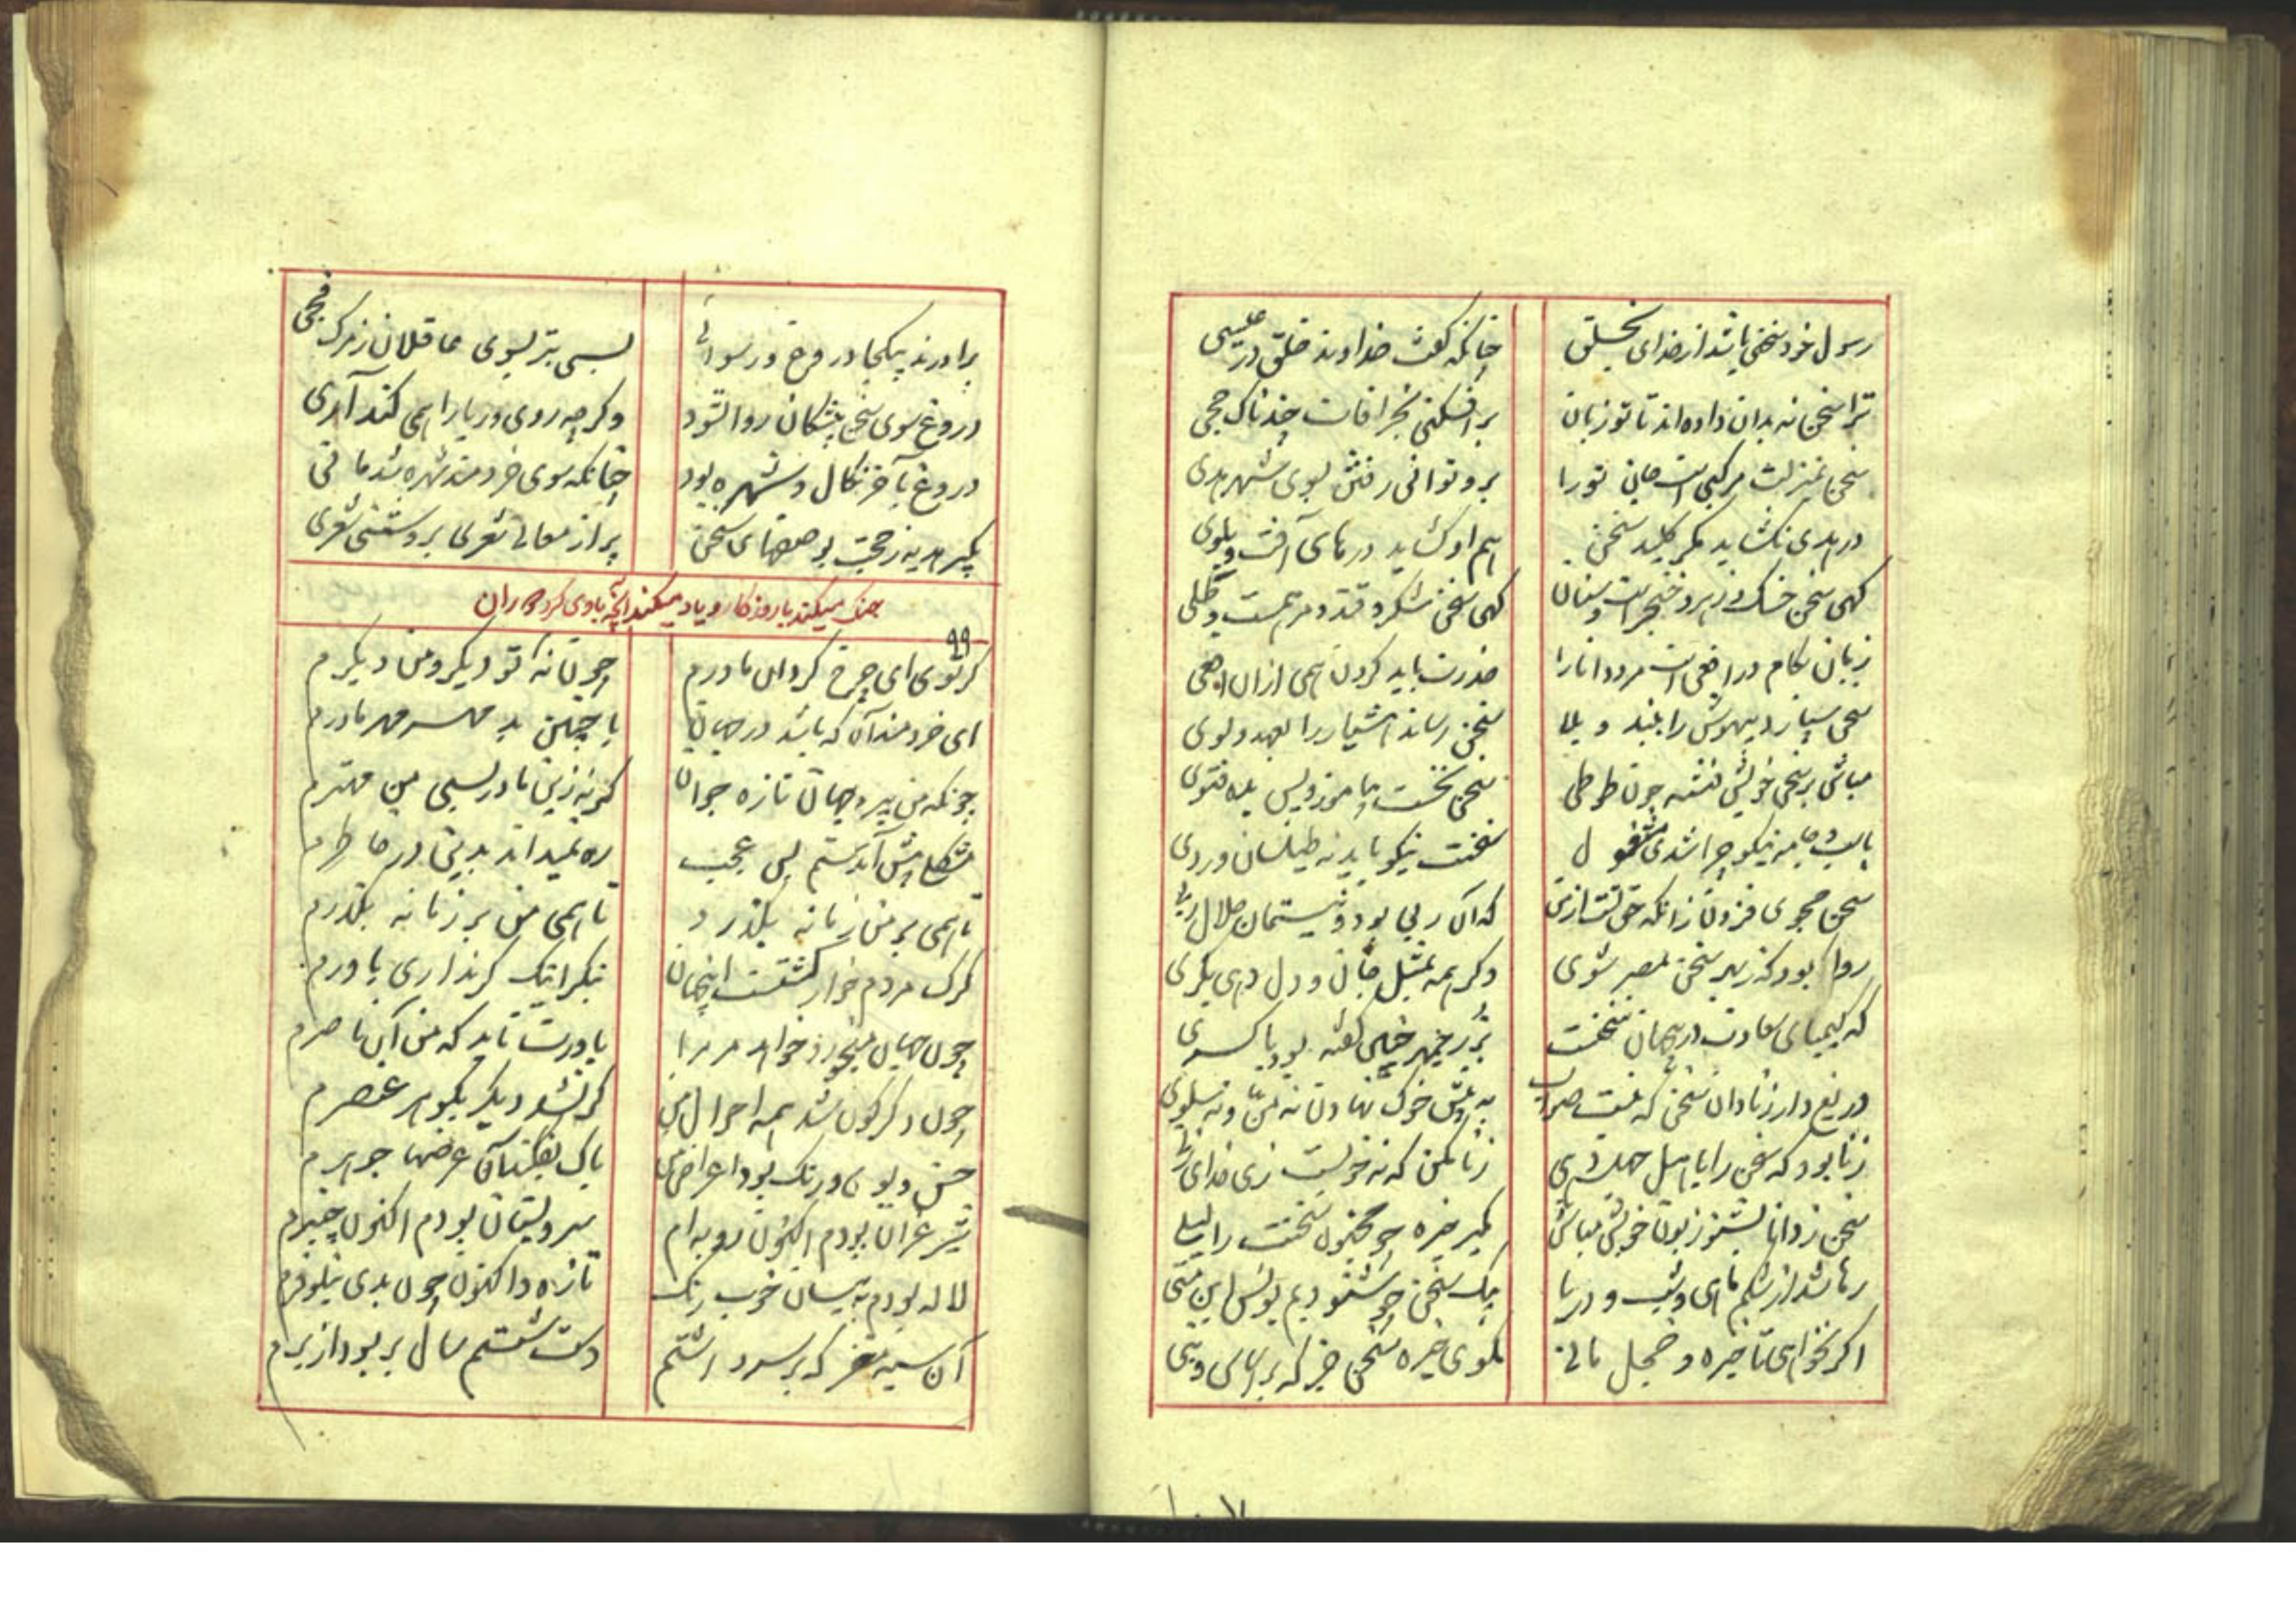 رسول خود سخنی باشد از خدای بخلق چنانکه گفت خداوند خلق در عیسی
ترا سخن نه بدان داده اند تا تو زبان برافکنی بخرافات خندناک حجی
سخن بمنزلت مرکبی است جان تو را برو توانی رفتن بسوی شهر هدی
در هدی نگشاید مگر کلید سخن هم او گشاید درهای آفت و بلوی
گهی سخن خسک و زهر و خنجر است و سنان گهی سخن شکر و قند و مرهمست و طلی
زبان بکام در افعی است مرد دانا را حذرت باید کردن همی ازان افعی
سخن سپارد بیهوش را ببند و بلا سخن رساند هشیار را بعهد و لوی
مباش بر سخن خویش فتنه چون طوطی سخن نخست بیاموز و پس بده فتوی
باسب و جامه نیکو چرا شدی مشغول سخنت نیکو باید نه طیلسان و ردی
سخن مجوی فزون زانکه حق تست ازین که آن ربی بود و نیست مان حلال ربی
روا بود که زبهر سخن بمصر شوی وگر همه بمثل جان و دل دهی بکری
که کیمیای سعادت در جهان سخنست بزرجمهر چنین گفته بود با کسری
دریغ دار زنادان سخن که نیست صواب به پیش خوک نهادن نه من و نه سلوی
زنا بود که سخن را باهل جهل دهی زنا مکن که نه خوبست زی خدای زنی
سخن زدانا بشنو زبون خویش مباش مگیر خیره چو مجنون سخنت را لیلی
رها شد از شکم ماهی و شب و دریا بیک سخن چو شنودیم یونس ابن متی
اگر نخواهی تا خیره و خجل مانی مگوی خیره سخن جز که بر اساس و بنی
برادرند بیکجا دروغ و رسوائی بسی بتر بسوی عاقلان ز مرگ فجی
دروغ سوی سخن پیشگان روا نشود وگرچه روی و ریا را همی کند آری
دروغ بآخر نکال و شهره بود چنانکه سوی خردمند شهره شد مانی
بگیر هدیه ز حجت بوصفهای سخن پر از معانی شعری بروشنی شعری
جنگ میکند با روزگار و یاد میکند آنچه با وی کرد دوران
۹۹
گر توی ای چرخ گردان مادرم چون نه تو دیگر و من دیگرم
ای خردمند آن که باشد در جهان با چنین بد مهر مادرم
چونکه من پیرم جهان تازه جوان گر نه زین مادر بسی من مهترم
مشکلی پیش آمدستم بس عجب ره نمیداند بدین در خاطرم
تا همی بر من زمانه بگذرد تا همی من بر زمانه بگذرم
گرگ مردم خوار گشتست اینجهان بنگر اینک گر نداری باورم
چون جهان میخورد خواهد مر مرا باورت ناید که من آن ناصرم
چون دگرگون شد همه احوال من گر نشد دیگر بگوهر عنصرم
حسن و بوی و رنگ بود اعراض من پاک بفکند آن عرضها جوهرم
شیر غران بودم اکنون روبه ام سرو بستان بودم اکنون چنبرم
لاله بودم به نیسان خوب رنگ تازه و اکنون چون بدی نیلوفرم
آن سیه مغفر که بر سر داشتم دست شستم سال بربود از برم